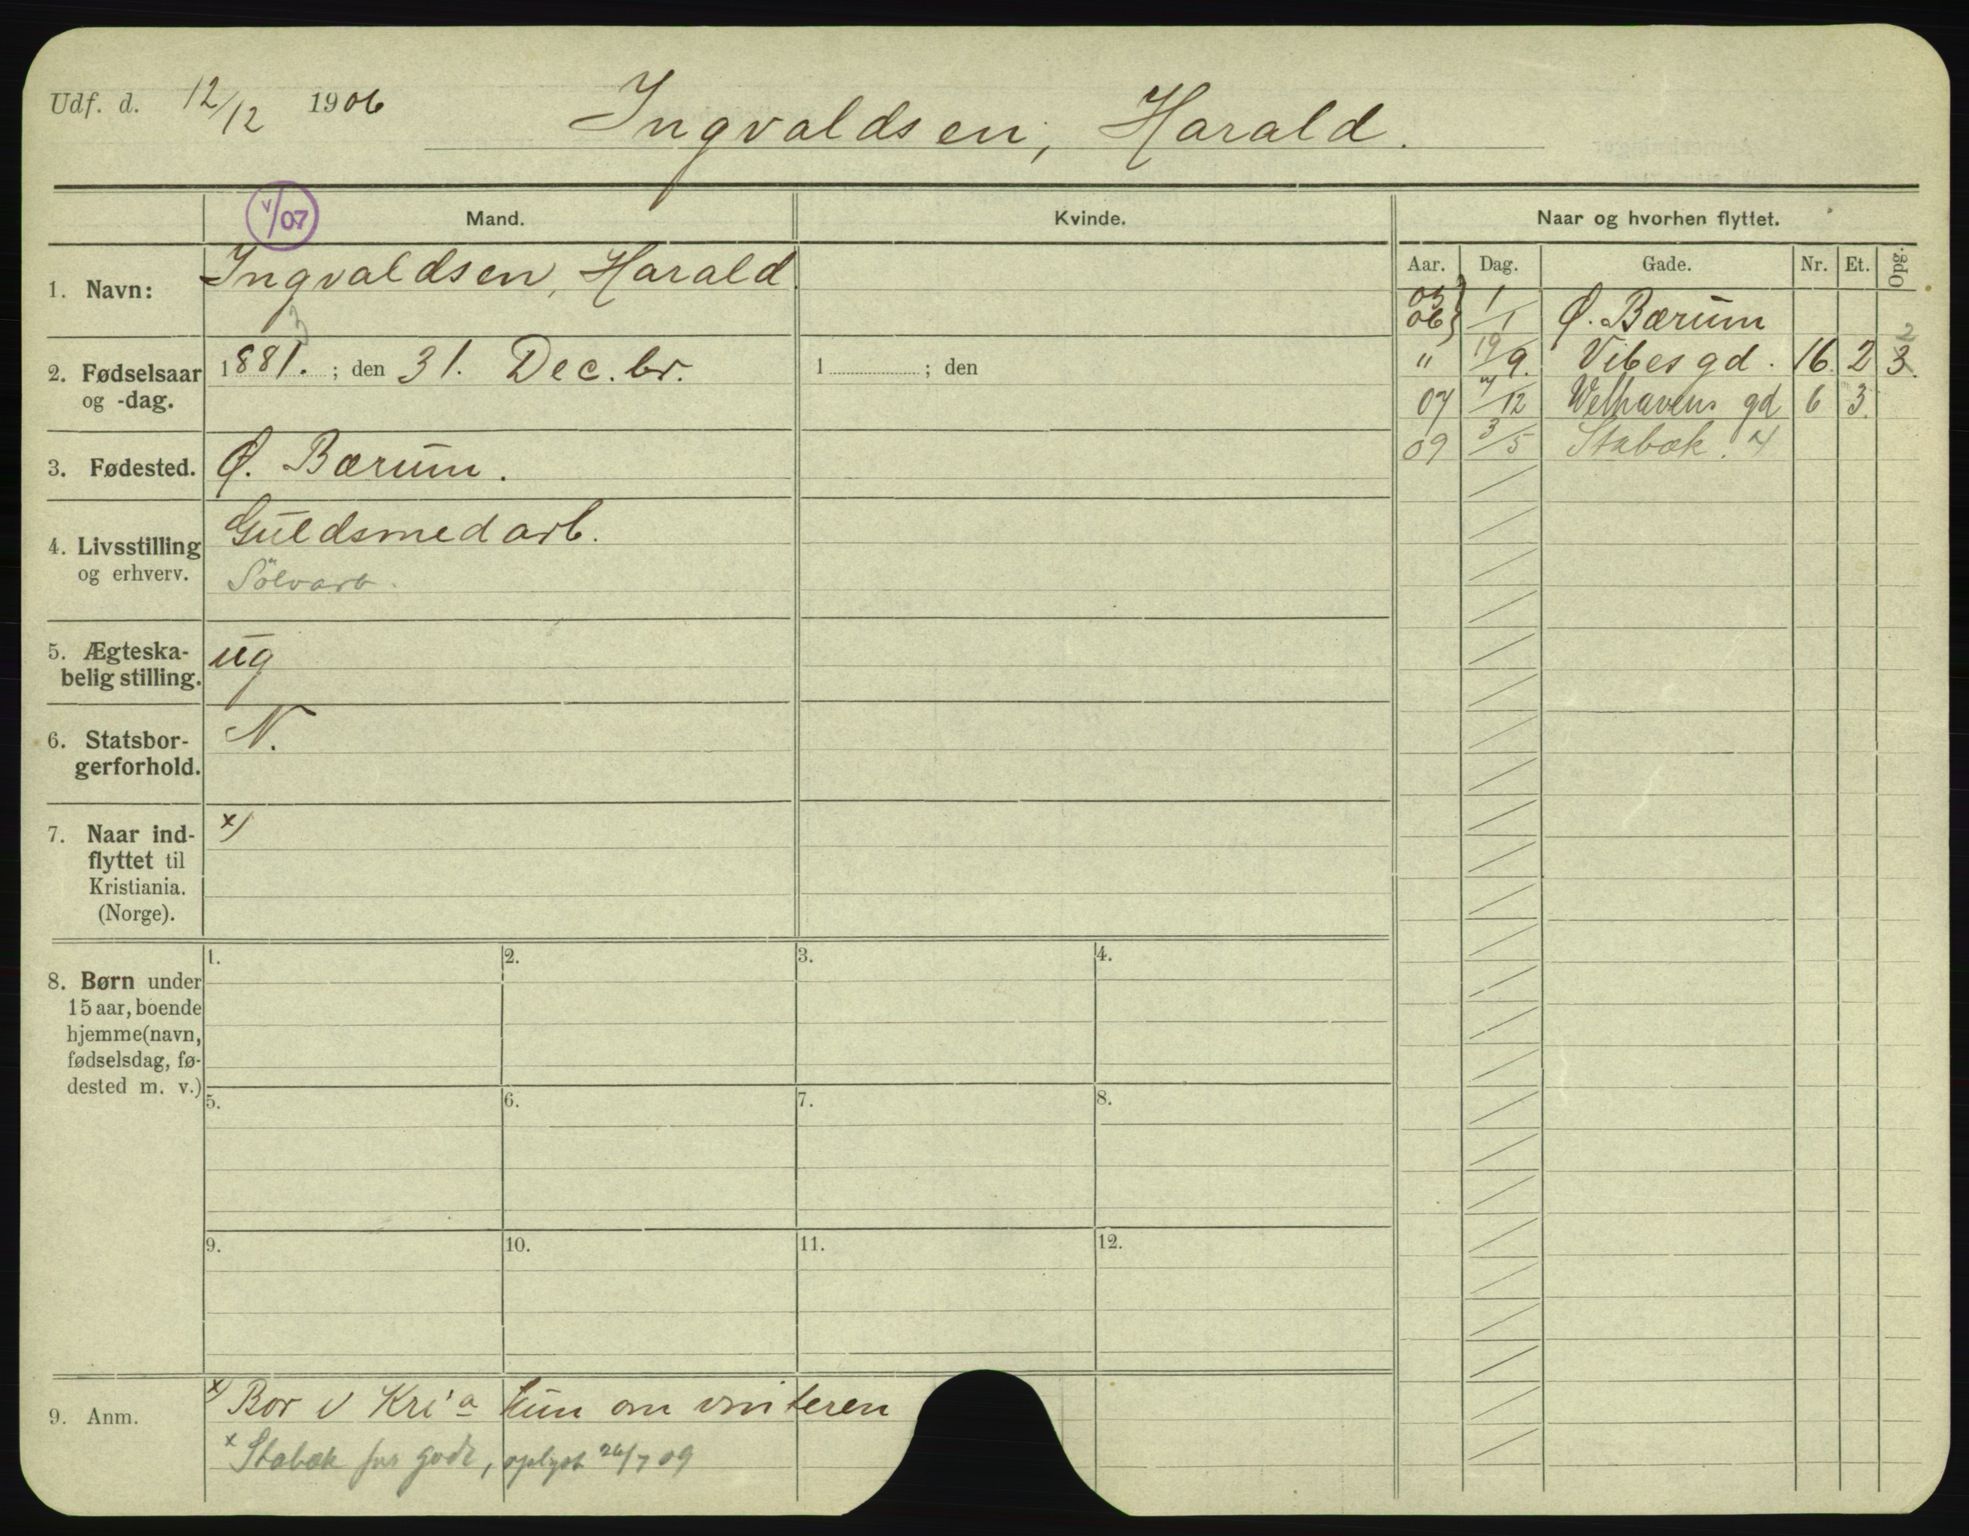 Udf. d. 12/12 1906 Ingvaldsen, Harald.
V/07
Mand. Kvinde. Naar og hvorhen flyttet.
Aar. Dag. Gade. Nr. Et. Opg.
1. Navn: Ingvaldsen, Harald
05 06 } 1/1 Ø. Bærum
3
2. Fødselsaar og -dag. 1881. ; den 31. Decbr. 1 ; den
" 19/9. Vibesgd. 16. 2 3. 2
07 /12 Welhavens gd 6 3.
09 3/5 Stabæk. x/
3. Fødested. Ø. Bærum.
4. Livsstilling og erhverv. Guldsmedarb.
Sölvarb.
5. Ægteska-
belig stilling. ug
6. Statsbor-
gerforhold. N.
7. Naar ind-
flyttet til
Kristiania.
(Norge). x/
8. Børn under
15 aar, boende
hjemme (navn,
fødselsdag, fø-
dested m. v.)
1. 2. 3. 4.
5. 6. 7. 8.
9. 10. 11. 12.
9. Anm. x/ Bor i Kri'a kun om vinteren
x Stabæk for godt, oplyst 26/7 09